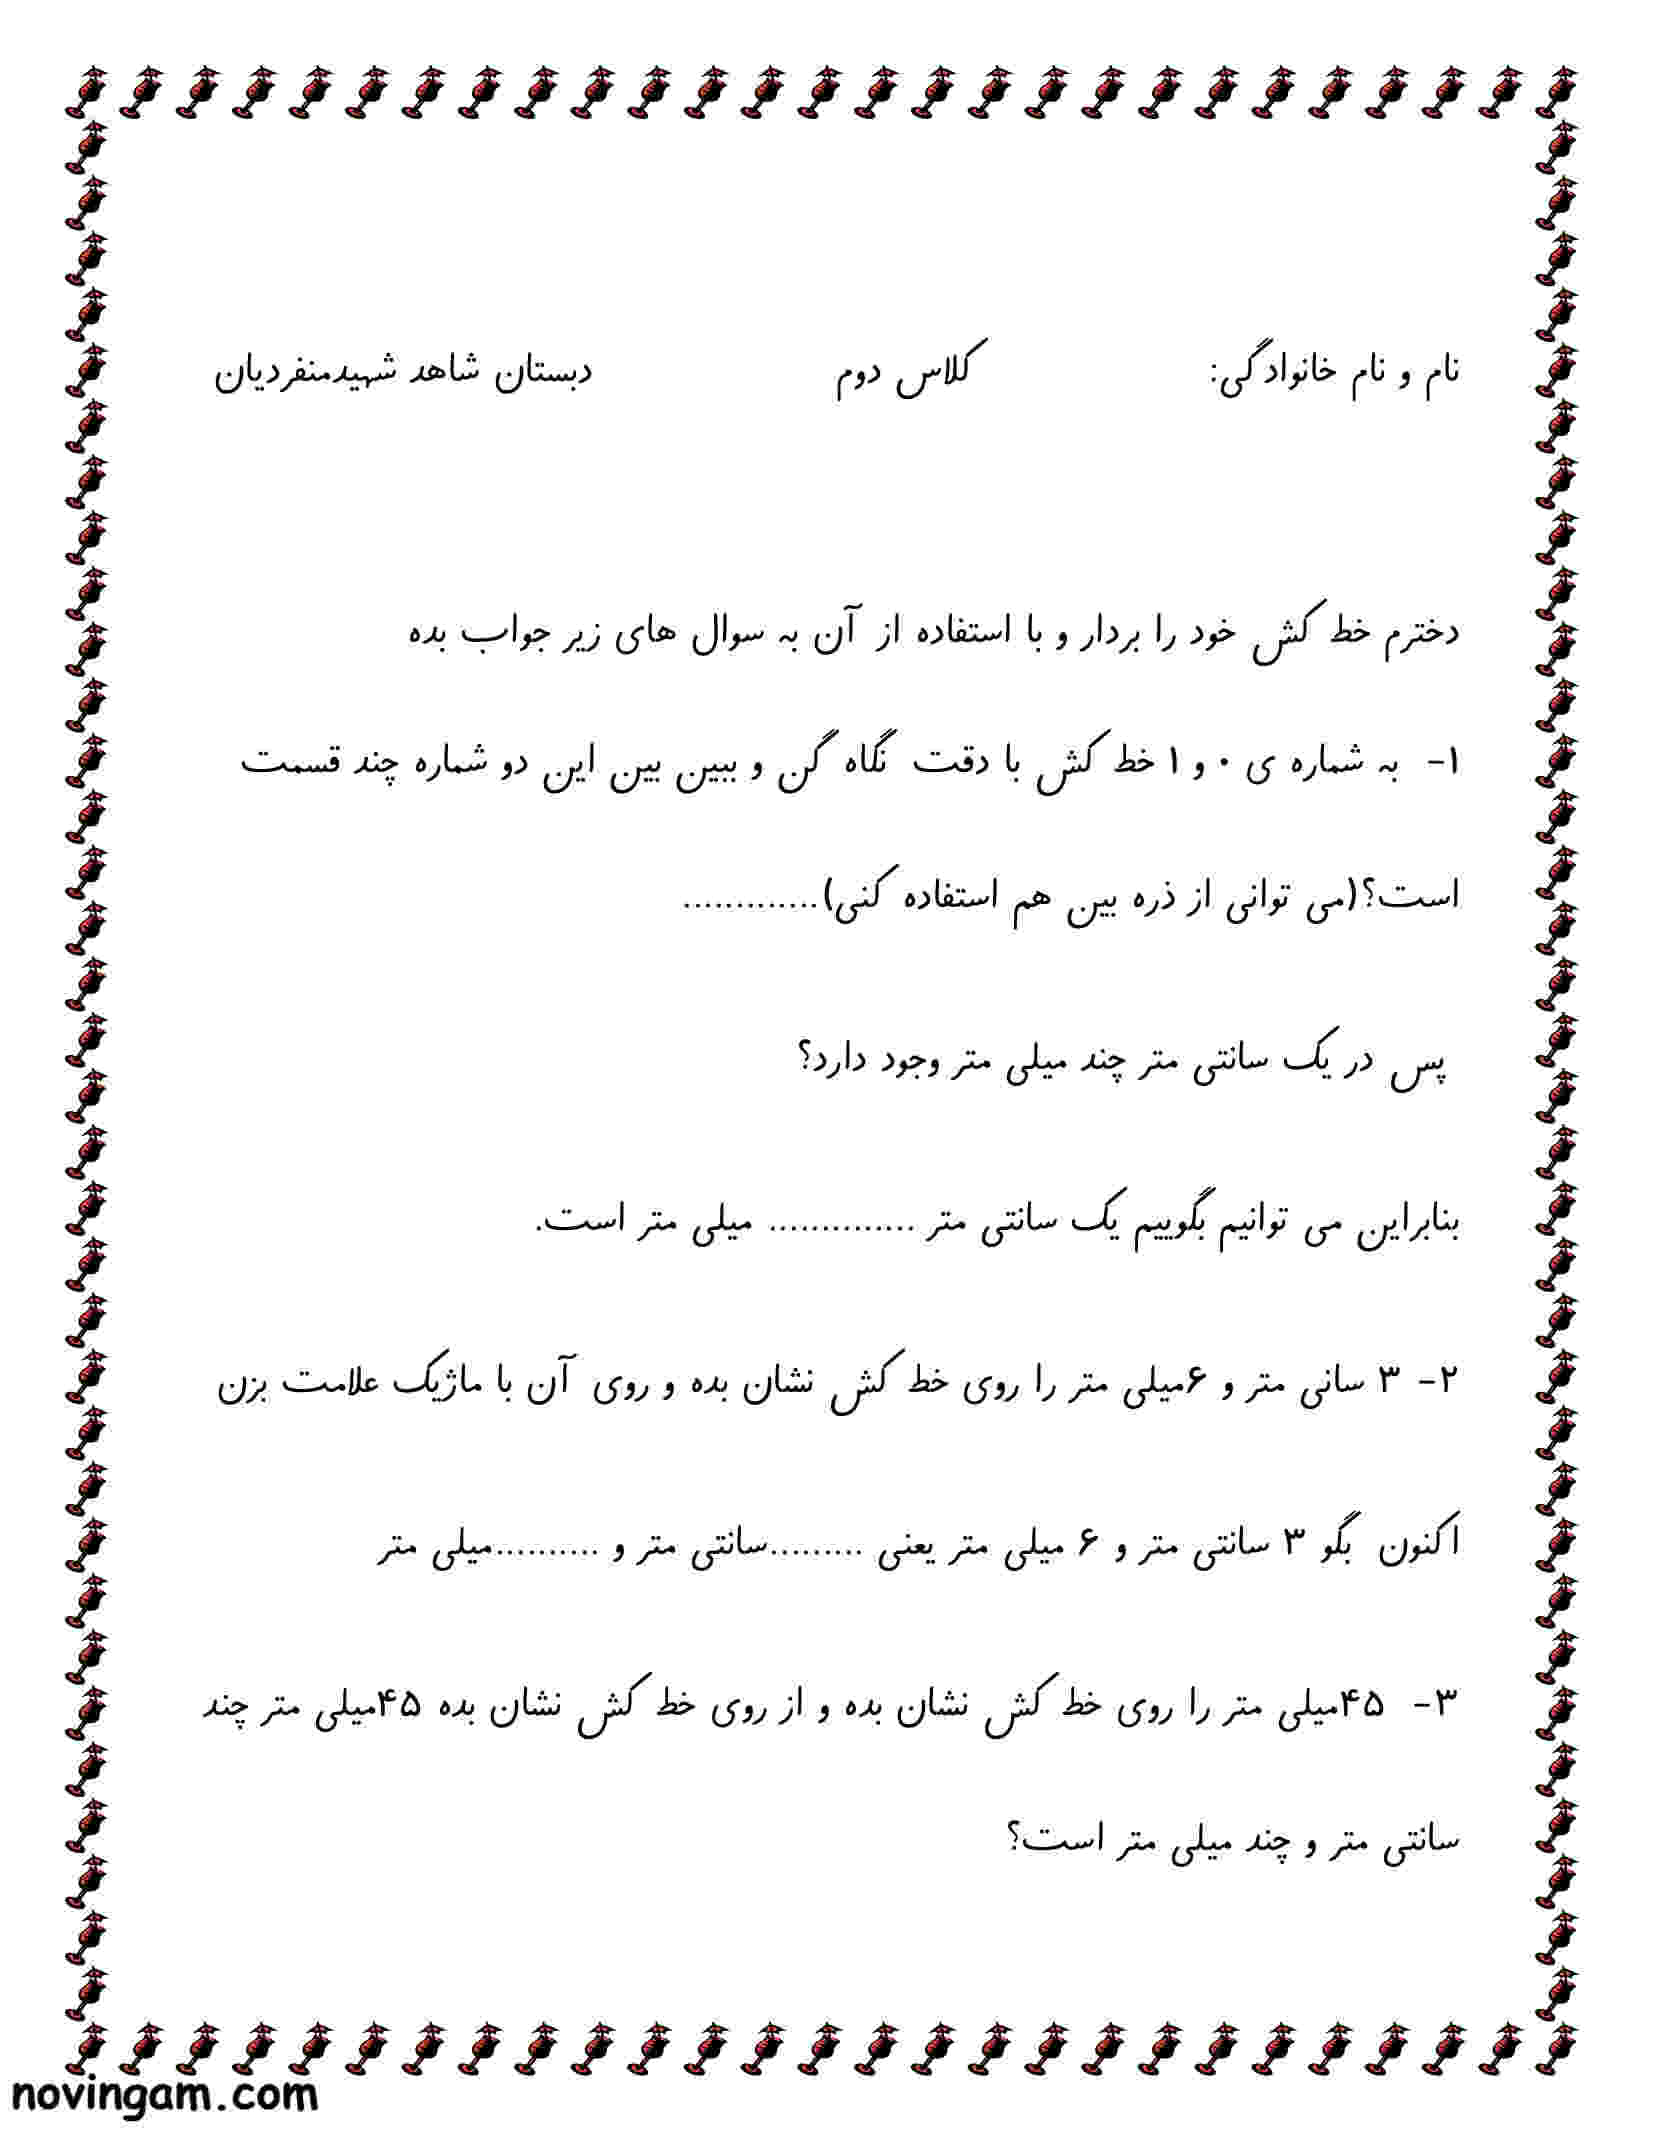 نام و نام خانوادگی: کلاس دوم دبستان شاهد شهیدمنفردیان
دخترم خط کش خود را بردار و با استفاده از آن به سوال های زیر جواب بده
۱- به شماره ی ۰ و ۱ خط کش با دقت نگاه گن و ببین بین این دو شماره چند قسمت
است؟(می توانی از ذره بین هم استفاده کنی).............
پس در یک سانتی متر چند میلی متر وجود دارد؟
بنابراین می توانیم بگوییم یک سانتی متر .............. میلی متر است.
۲- ۳ سانی متر و ۶میلی متر را روی خط کش نشان بده و روی آن با ماژیک علامت بزن
اکنون بگو ۳ سانتی متر و ۶ میلی متر یعنی .........سانتی متر و ..........میلی متر
۳- ۴۵میلی متر را روی خط کش نشان بده و از روی خط کش نشان بده ۴۵میلی متر چند
سانتی متر و چند میلی متر است؟
novingam.com